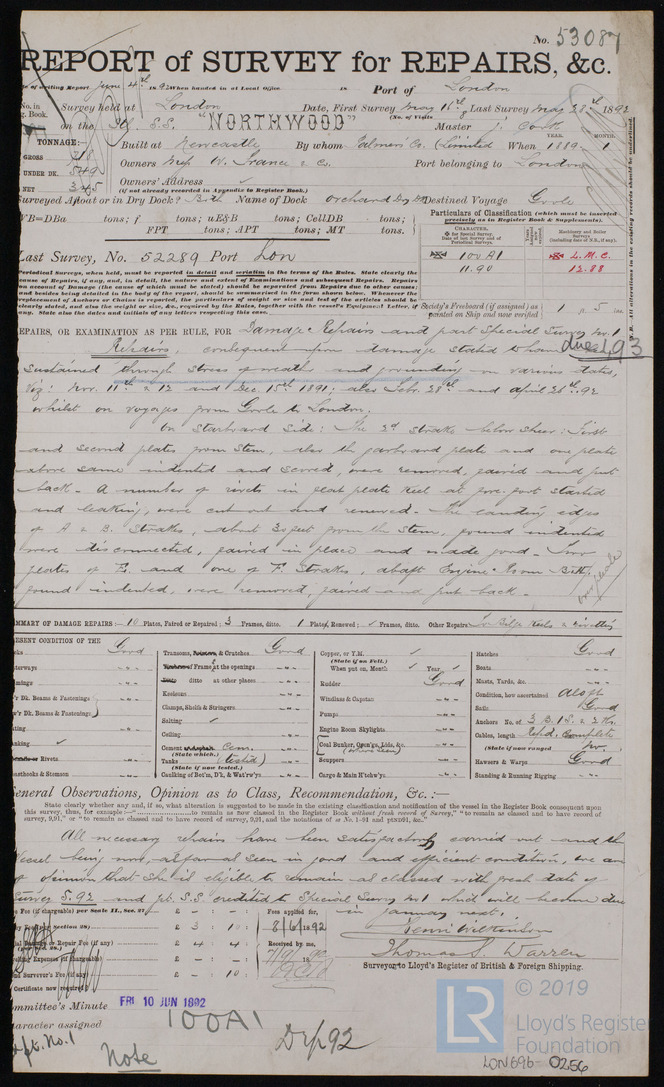 No. 53087
REPORT of SURVEY for REPAIRS, &c.
of writing Report June 4th 1892 When handed in at Local Office 18 Port of London
No. in Survey held at London Date, First Survey May 16th Last Survey May 28th 1892
g. Book. (No. of Visits 8)
on the S.S. "NORTHWOOD" Master J. Cork
TONNAGE: Built at Newcastle By whom Palmers Co. Limited When 1889 YEAR. MONTH. 1
GROSS
UNDER DK. 549 Owners W. France & Co. Port belonging to London
NET 345 Owners' Address
(if not already recorded in Appendix to Register Book.)
Surveyed Afloat or in Dry Dock? Both Name of Dock Orchard Dry Dk Destined Voyage Goole
WB=DBa tons; f tons; uE&B tons; CellDB tons;
FPT tons; APT tons; MT tons.
Particulars of Classification (which must be inserted
precisely as in Register Book & Supplements).
CHARACTER.
Machinery and Boiler
Surveys
100 A1 L.M.C.
11.90 12.88
Last Survey, No. 52289 Port Lon
Periodical Surveys, when held, must be reported in detail and seriatim in the terms of the Rules. State clearly the
cause of Repairs, if any, and, in detail, the nature and extent of Examinations and subsequent Repairs. Repairs
on account of Damage (the cause of which must be stated) should be separated from Repairs due to other causes;
and besides being detailed in the body of the report, should be summarised in the form shewn below. Whenever the
replacement of Anchors or Chains is reported, the particulars of weight or size and test of the articles should be
clearly stated, and also the weight or size, &c., required by the Rule, together with the vessel's Equipment Letter, if
any. State also the dates and initials of any letters respecting this case.
Society's Freeboard (if assigned) as
painted on Ship and now verified 1 5
N.B.—All alterations in the existing records should be underlined.
REPAIRS, OR EXAMINATION AS PER RULE, FOR Damage Repairs and part Special Survey No. 1
due 1.93
Repairs, consequent upon damage stated to have been
sustained through stress of weather and grounding on various dates,
Viz: Nov. 11th & 12 and Dec. 15th 1891: also Feby. 28th and April 26th .92
whilst on voyages from Goole to London.
On Starboard side: The 2nd strake below sheer: First
and second plates from Stem, also the garboard plate and one plate
above same indented and scored, were removed, faired and put
back. A number of rivets in flat plate keel at fore-part started
and leaking, were cut out and renewed. The landing edges
of A & B. Strakes, about 30 feet from the Stem, found indented
were disconnected, faired in place and made good.
plates of E. and one of F. Strakes, abaft Engine Room Bkhd
found indented, were removed, faired and put back.
SUMMARY OF DAMAGE REPAIRS:— 10 Plates, Faired or Repaired; 3 Frames, ditto. 1 Plates, Renewed; Frames, ditto. Other Repairs Bilge Keels & Rivetting
PRESENT CONDITION OF THE
Good
Transoms, & Crutches Good
of Frame at the openings
ditto at other places
Keelsons
Clamps, Shelfs & Stringers
Salting
Ceiling
Cement Cem.
(State which.)
Tanks (tested)
(State if now tested.)
Caulking of Bot'm, D'k, & Wat'rw'ys
Copper, or Y.M.
(State if on Felt.)
When put on, Month Year
Rudder Good
Windlass & Capstan
Pumps
Engine Room Skylights
Coal Bunker, Open'gs, Lids, &c.
Scuppers
Cargo & Main H'tchw'ys
Hatches Good
Boats
Masts, Yards, &c.
Condition, how ascertained Aloft
Sails Good
Anchors No. of 3 B. 1 S. & 2 Ks.
Cables, length Reqd. Complete
(State if now ranged No.
Hawsers & Warps Good
Standing & Running Rigging
General Observations, Opinion as to Class, Recommendation, &c.:—
State clearly whether any, and if so, what alteration is suggested to be made in the existing classification and notification of the vessel in the Register Book consequent upon
this survey, thus, for example:—"to remain as now classed in the Register Book without fresh record of Survey," "to remain as classed and to have record of
survey, 9,91," or "to remain as classed and to have record of survey, 9,91, and the notations of ss No. 1-91 and ptND91, &c."
All necessary repairs have been satisfactorily carried out and the
Vessel being now, as far as seen in good and efficient condition, we are
of opinion that she is eligible to remain as classed with fresh date of
Survey 5.92 and pt. S.S. credited to Special Survey No 1 which will become due
in January next.
Fee (if chargeable) per Scale II., Sec. 27 £ - : - : Fees applied for,
£ 3 : 10 : 8/6/1892
Repair Fee (if any) £ 4 : 4 Received by me,
Travelling Expenses (if chargeable) £ - : - :
2nd Surveyor's Fee (if any) £ - : 10 :
Certificate now required
Henri Wilkinson
Thomas S. Warren
Surveyor to Lloyd's Register of British & Foreign Shipping.
Committee's Minute FRI 10 JUN 1892
Character assigned 100A1
pt. No. 1
Note
Drp 92
© 2019
LR
Lloyd's Register
Foundation
LON696-0256